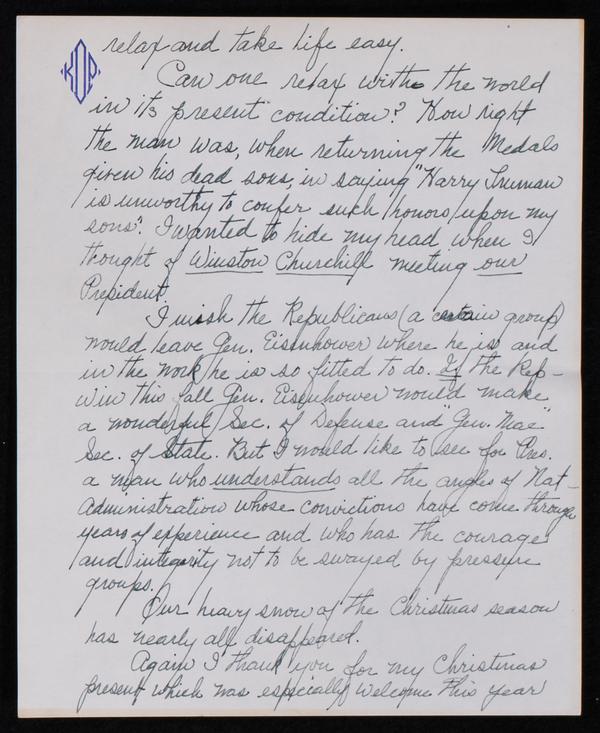 KDP
relax and take life easy.
Can one relax with the world
in its present condition? How right
the man was, when returning the Medals
given his dead sons, in saying "Harry Truman
is unworthy to confer such honors upon my
sons". I wanted to hide my head when I
thought of Winston Churchill meeting our
President.
I wish the Republicans (a certain group)
would leave Gen. Eisenhower where he is and
in the work he is so fitted to do. If the Rep-
win this fall Gen. Eisenhower would make
a wonderful Sec. of Defense and "Gen. Mac"
Sec. of State. But I would like to see for Pres.
a man who understands all the angles of Nat-
Administration whose convictions have come through
years of experience and who has the courage
and integrity not to be swayed by pressure
groups.
Our heavy snow of the Christmas season
has nearly all disappeared.
Again I thank you for my Christmas
present which was especially welcome this year